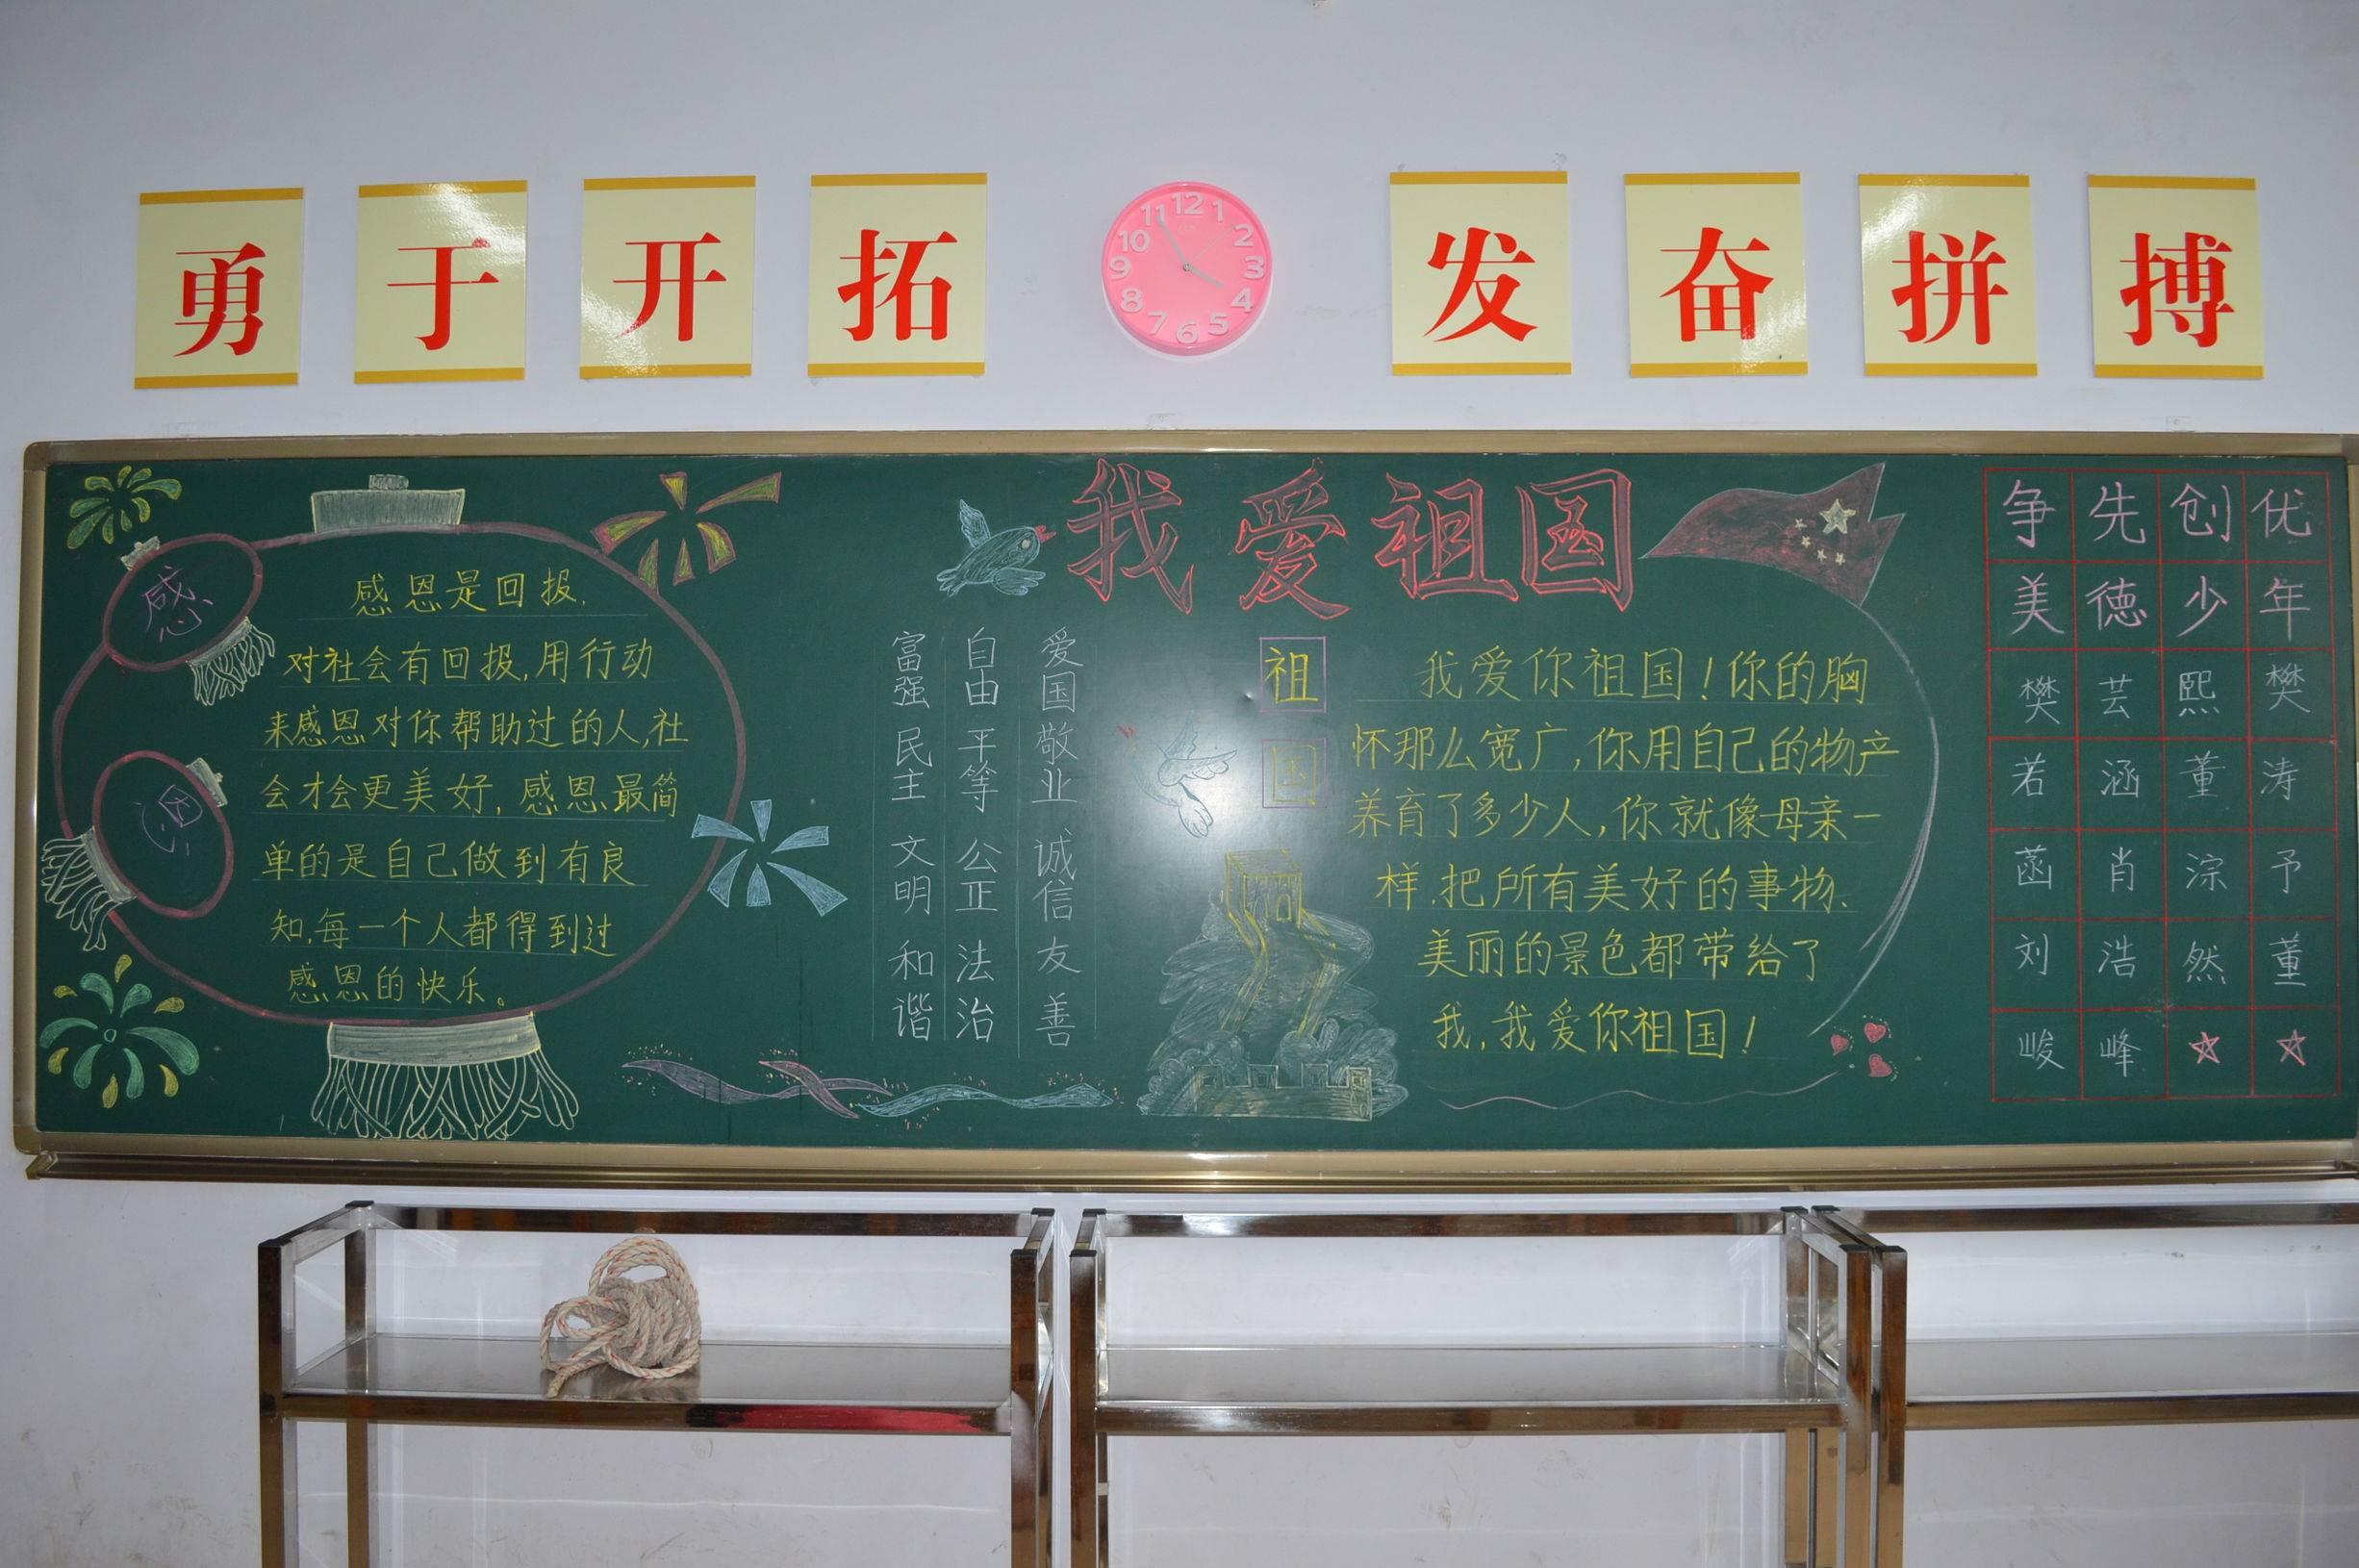 勇于开拓
发奋拼搏
12
1
2
3
4
5
6
7
8
9
10
11
感
恩
感恩是回报,
对社会有回报,用行动
来感恩对你帮助过的人,社
会才会更美好,感恩最简
单的是自己做到有良
知,每一个人都得到过
感恩的快乐。
我爱祖国
富强 民主 文明 和谐
自由 平等 公正 法治
爱国 敬业 诚信 友善
祖国
我爱你祖国!你的胸
怀那么宽广,你用自己的物产
养育了多少人,你就像母亲一
样.把所有美好的事物、
美丽的景色都带给了
我,我爱你祖国!
争先创优
美德少年
樊芸熙樊
若涵董涛
菡肖淙予
刘浩然董
峻峰